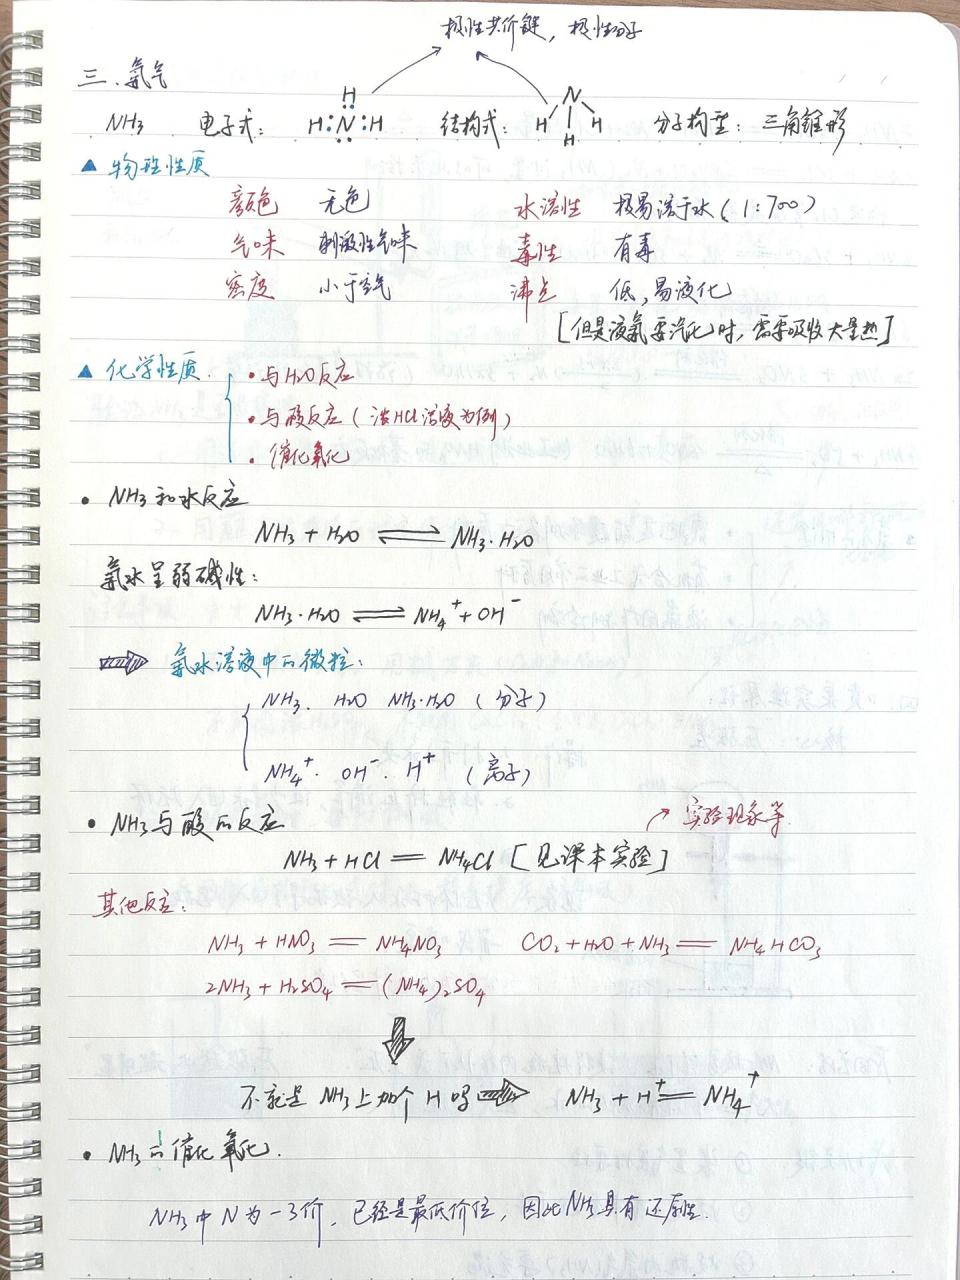 极性共价键，极性分子
三．氨气
NH3 电子式： H:N:H H 结构式： N H H H 分子构型：三角锥形
▲ 物理性质
颜色 无色 水溶性 极易溶于水（1:700）
气味 刺激性气味 毒性 有毒
密度 小于空气 沸点 低，易液化
[但是液氨要汽化时，需要吸收大量热]
▲ 化学性质
• 与H2O反应
• 与酸反应（浓HCl溶液为例）
• 催化氧化
• NH3和水反应
NH3 + H2O ⇌ NH3·H2O
氨水呈弱碱性：
NH3·H2O ⇌ NH4⁺ + OH⁻
⇒ 氨水溶液中的微粒：
NH3. H2O NH3·H2O （分子）
NH4⁺. OH⁻. H⁺ （离子）
• NH3与酸的反应 ↗ 实验现象等.
NH3 + HCl = NH4Cl [见课本实验]
其他反应：
NH3 + HNO3 = NH4NO3 CO2 + H2O + NH3 = NH4HCO3
2NH3 + H2SO4 = (NH4)2SO4
不就是NH3上加个H吗 ⇒ NH3 + H⁺ = NH4⁺
• NH3的催化氧化.
NH3中N为-3价，已经是最低价位，因此NH3具有还原性.